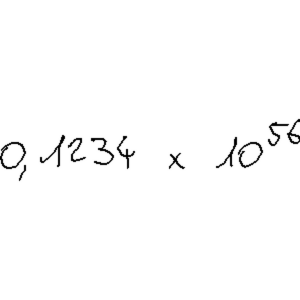 0,1234 x 10⁵⁶